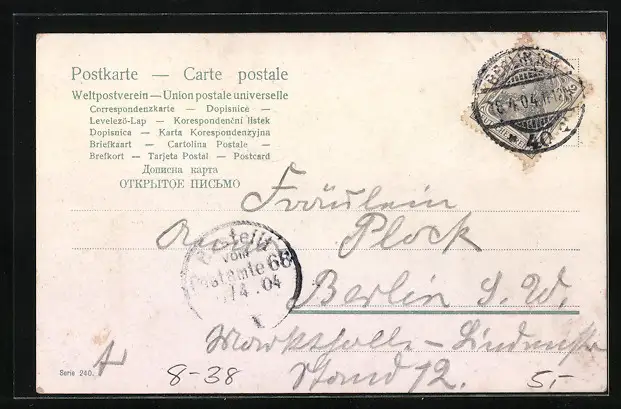 Postkarte — Carte postale
Weltpostverein — Union postale universelle
Correspondenzkarte — Dopisnice —
Levelező-Lap — Korespondenční lístek
Dopisnica — Karta Korespondenzyjna
Briefkaart — Cartolina Postale —
Brefkort — Tarjeta Postal — Postcard
Дописна карта
ОТКРЫТОЕ ПИСЬМО
BERLIN N.W.
40
Fräulein
Anna Plock
Bestellt
vom
Postamte 68
/4.04
Berlin S. W.
Markthalle - Lindenstr
Stand 12.
Serie 240.
8-38
5,-